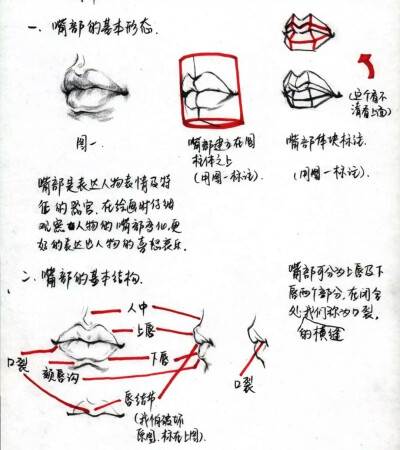 一、嘴部的基本形态.
图一
嘴部建立在圆
柱体之上
(用图一标注).
(这个看不
清看上面)
嘴部体块标注.
(用图一标注).
嘴部是表达人物表情及特
征的器官,在绘画时仔细
观察人物的嘴部变化,更
好的表达出人物的喜怒哀乐.
二、嘴部的基本结构.
嘴部可分为上唇及下
唇两个部分,在闭合
处我们称为口裂.
的横缝
人中
上唇
下唇
口裂
颏唇沟
唇结节
(我怕破坏
原图,标在上图).
口裂